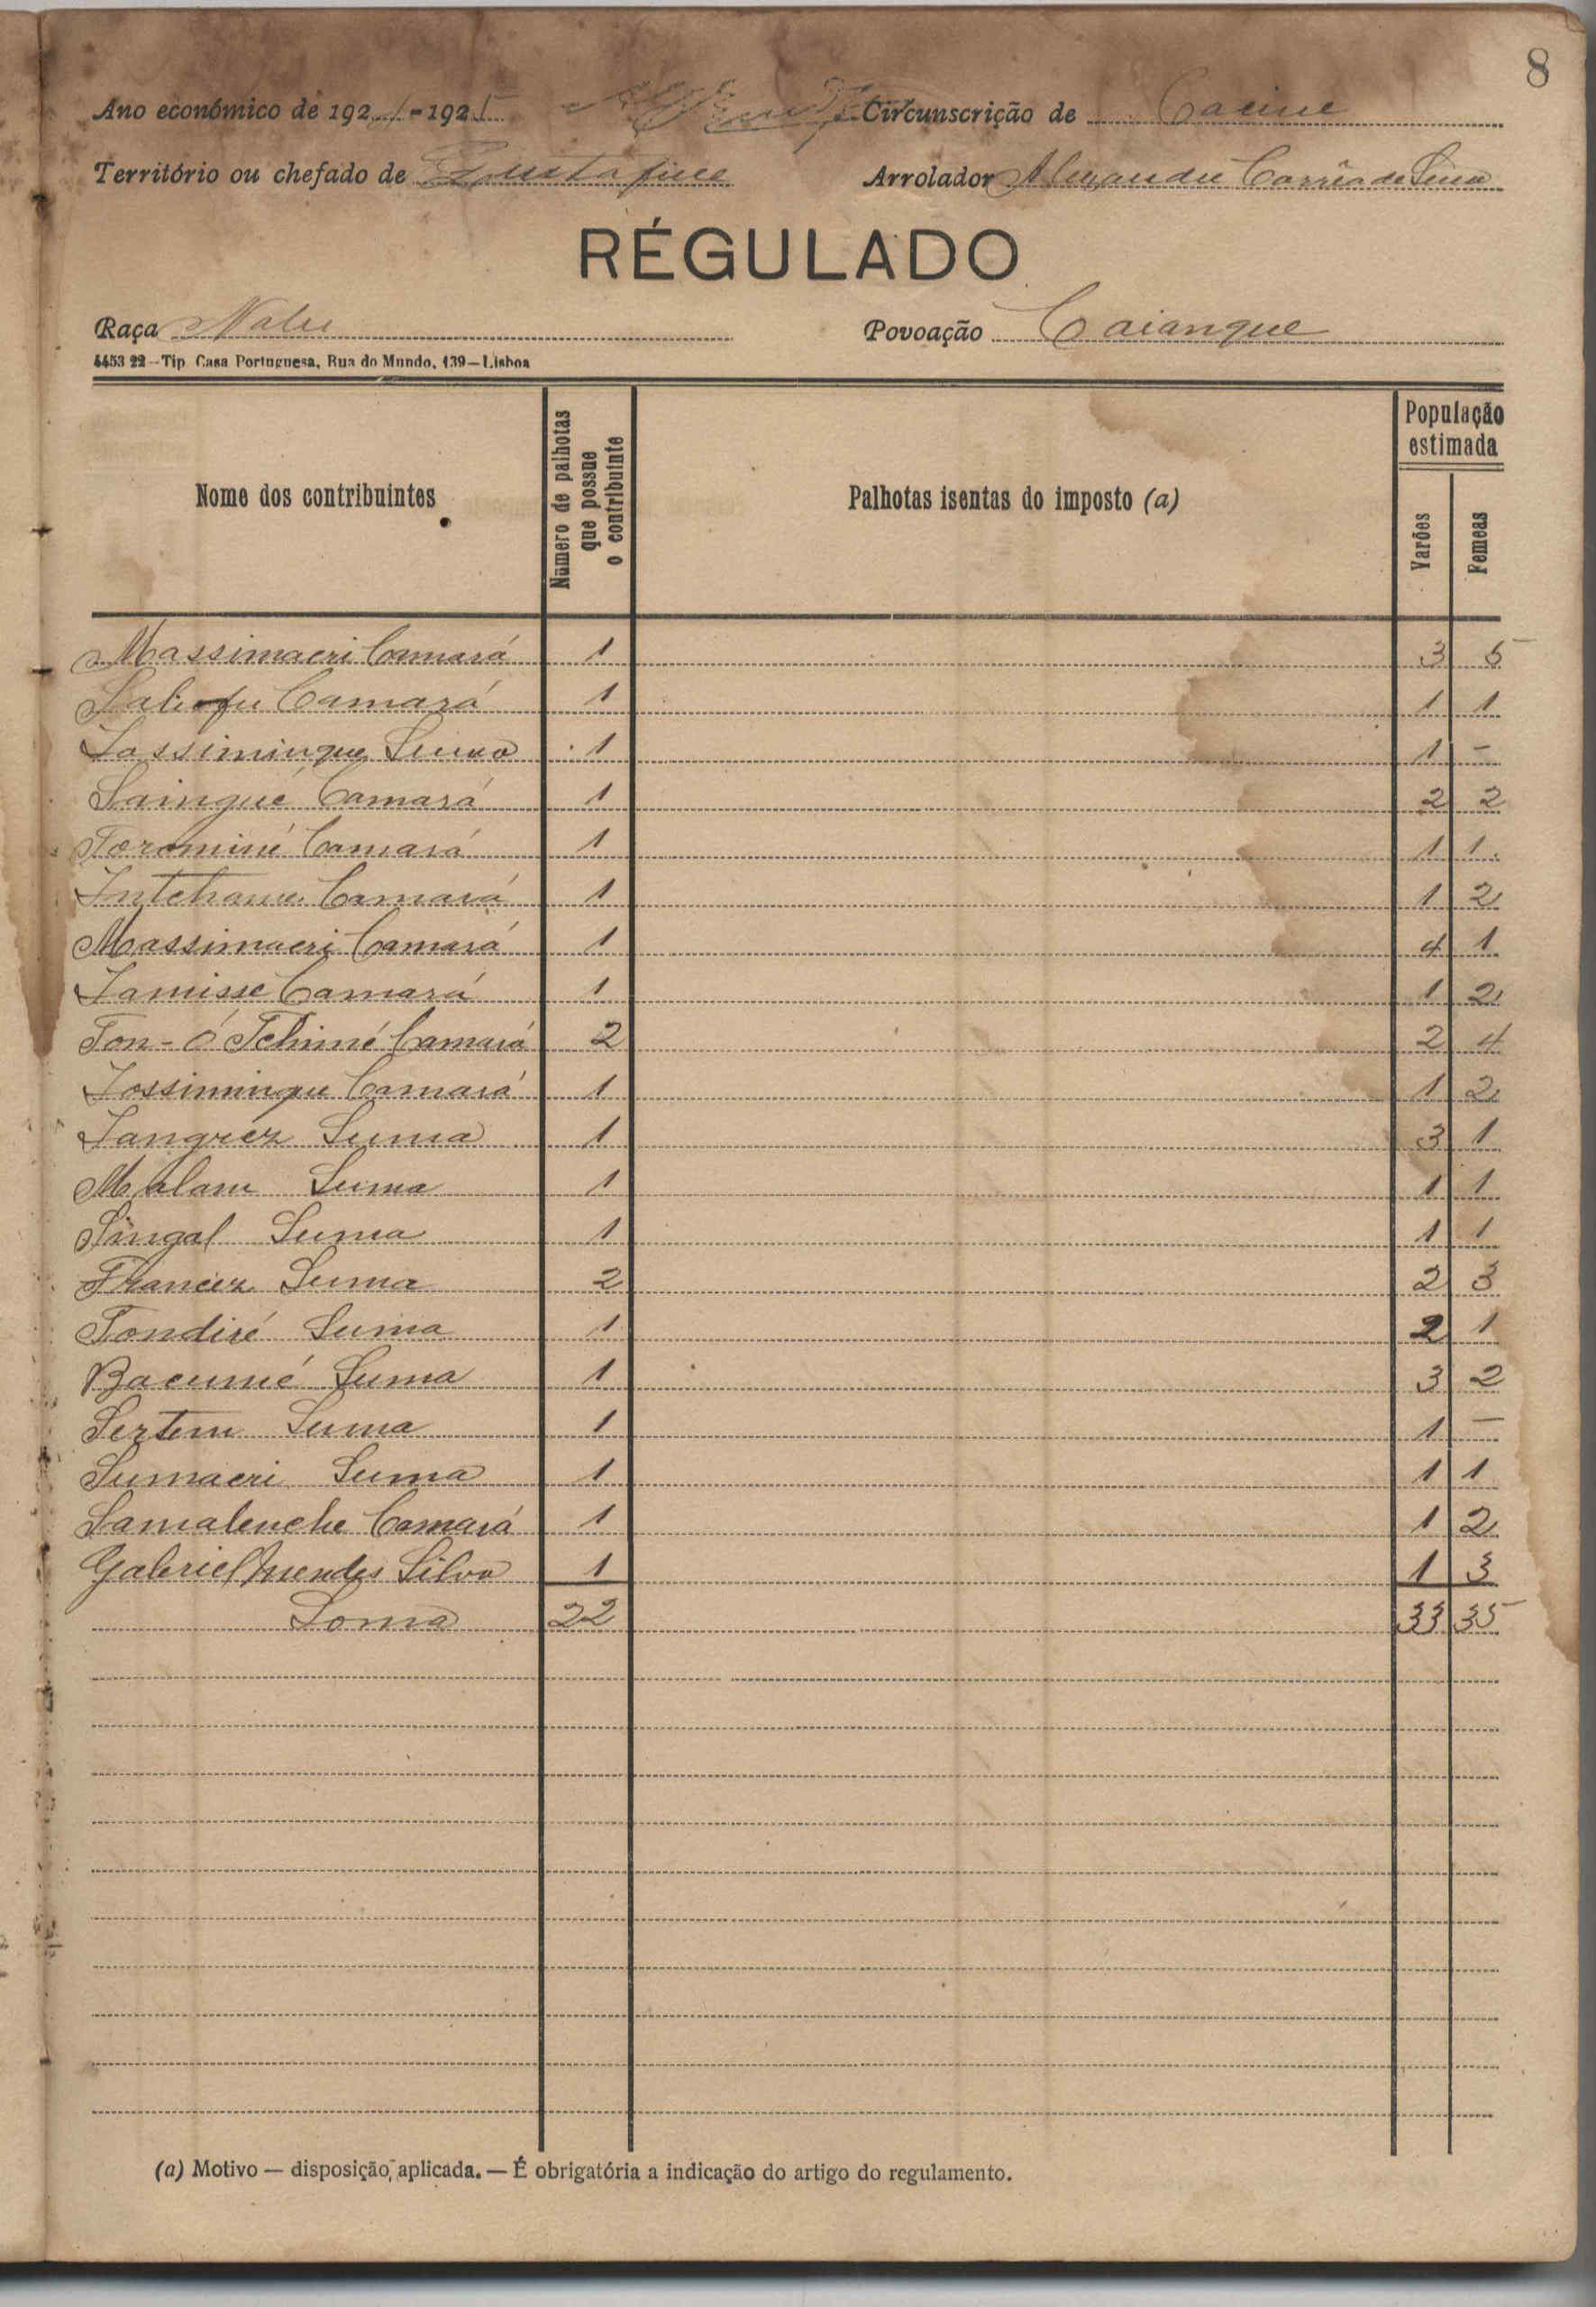 8
Ano económico de 1924-1925 Circunscrição de Cacine
Território ou chefado de Arrolador Alexandre Corrêa de Sena
RÉGULADO
Raça Nalu Povoação Caianque
4453 22 - Tip. Casa Portuguesa, Rua do Mundo, 139 - Lisboa
Nome dos contribuintes Número de palhotas que possue o contribuinte Palhotas isentas do imposto (a) População estimada Varões Femeas
Massimacri Camará 1 3 5
Camará 1 1 1
Suma 1 1 -
Saingué Camará 1 2 2
Camará 1 1 1
Camará 1 1 2
Massimacri Camará 1 4 1
Lamisse Camará 1 1 2
Ton-Ó Tchimé Camará 2 2 4
Camará 1 1 2
Suma 1 3 1
Malam Suma 1 1 1
Singal Suma 1 1 1
Francez Suma 2 2 3
Tondiré Suma 1 2 1
Bacumé Suma 1 3 2
Suma 1 1 -
Sumacri Suma 1 1 1
Samalenche Camará 1 1 2
Gabriel Mendes Silva 1 1 3
Soma 22 33 35
(a) Motivo — disposição, aplicada. — É obrigatória a indicação do artigo do regulamento.